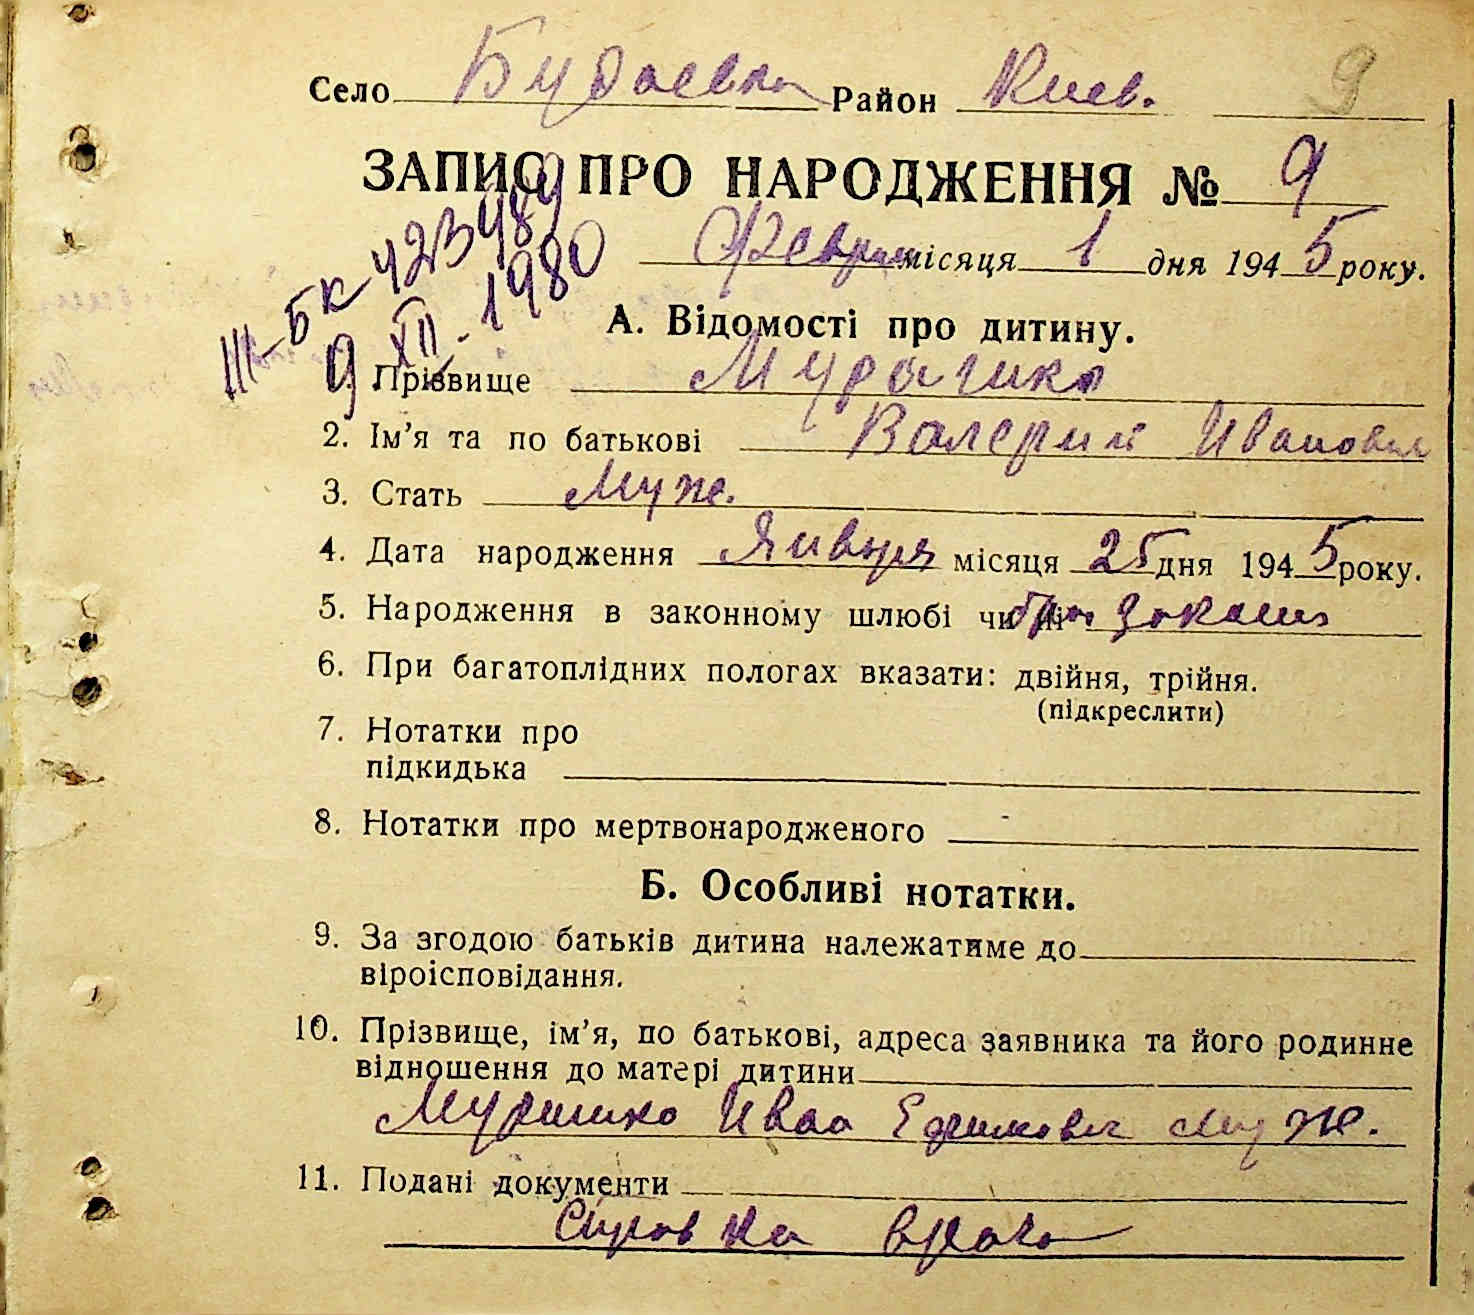 Село Будаевка Район Киев. 9
ЗАПИС ПРО НАРОДЖЕННЯ № 9
III-БК 423489
9 XII-1980
місяця 1 дня 1945 року.
А. Відомості про дитину.
Прізвище
2. Ім’я та по батькові Валерий Иванович
3. Стать Муж.
4. Дата народження Января місяця 25 дня 1945 року.
5. Народження в законному шлюбі чи ні
6. При багатоплідних пологах вказати: двійня, трійня.
(підкреслити)
7. Нотатки про
підкидька
8. Нотатки про мертвонародженого
Б. Особливі нотатки.
9. За згодою батьків дитина належатиме до
віроісповідання.
10. Прізвище, ім’я, по батькові, адреса заявника та його родинне
відношення до матері дитини
Иван Ефимович муж.
11. Подані документи
Справка врача